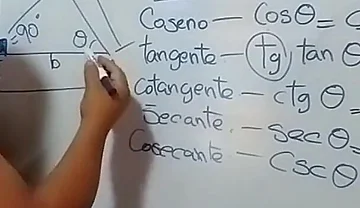 90° θ
b
Coseno — Cosθ =
tangente — tg, tanθ
cotangente — ctgθ =
Secante. — secθ =
Cosecante — Cscθ